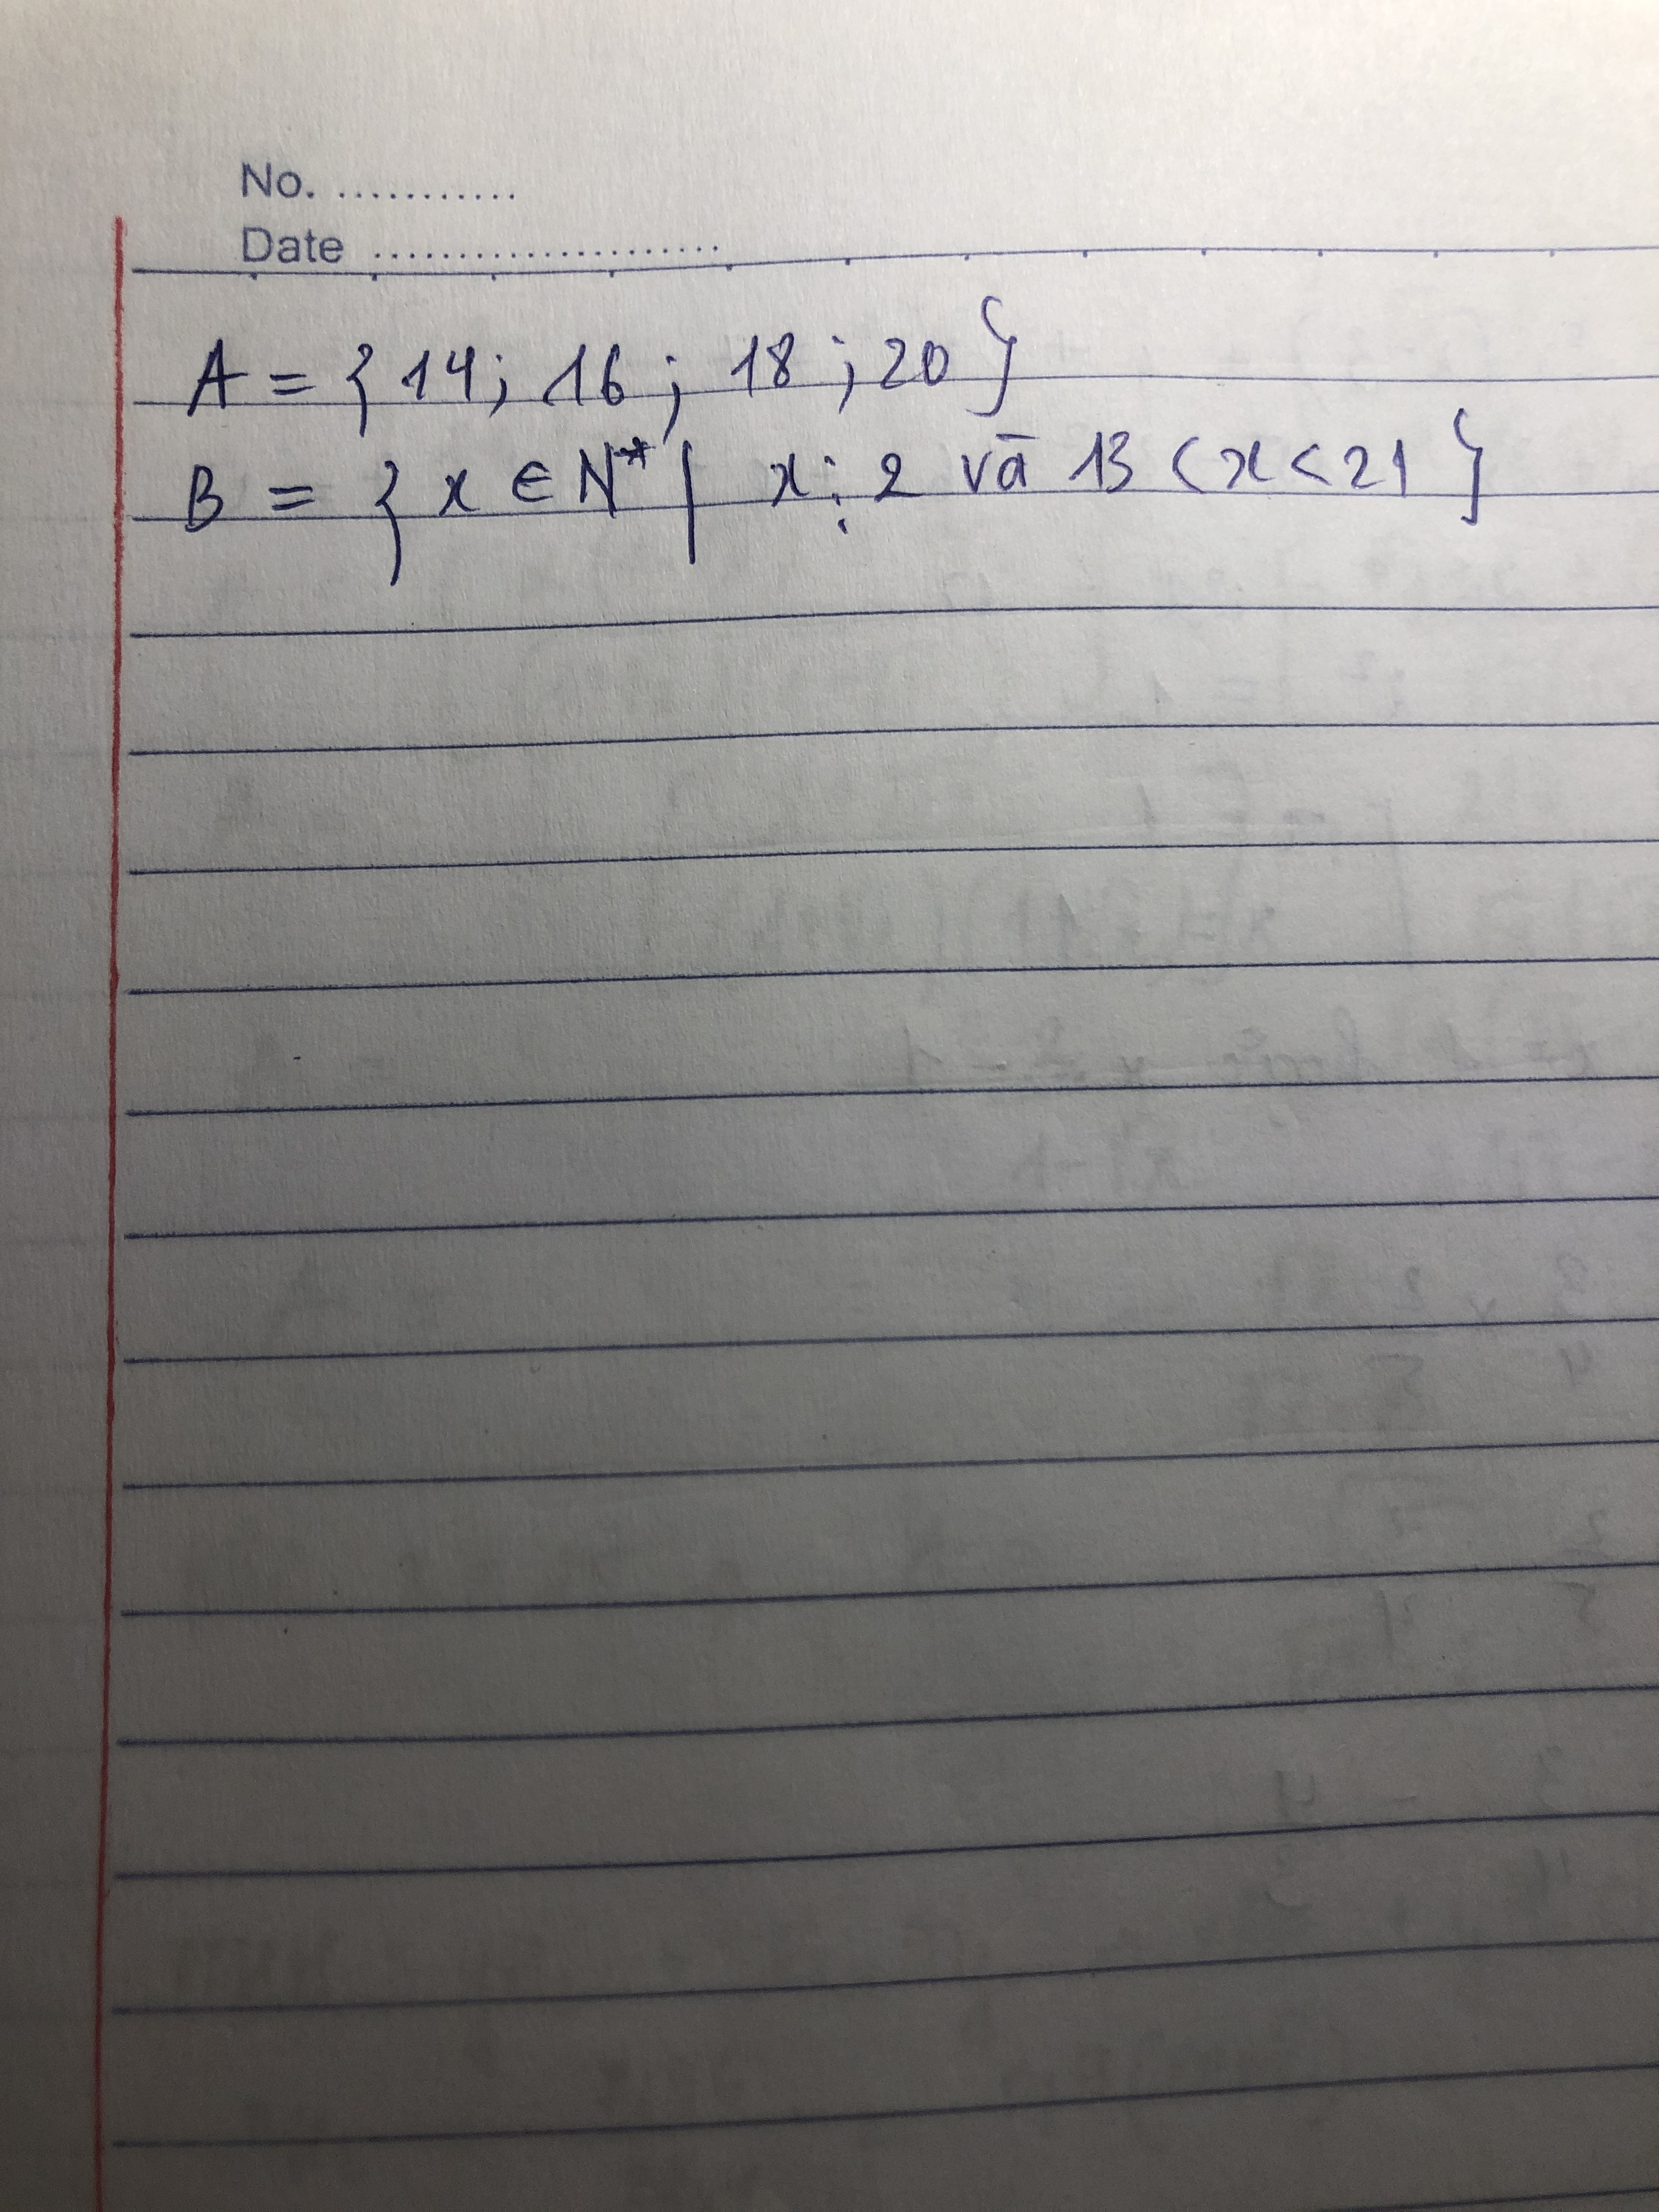 No. ...........
Date .....................
A = { 14; 16; 18; 20 }
B = { x ∈ N* | x ⋮ 2 và 13 < x < 21 }